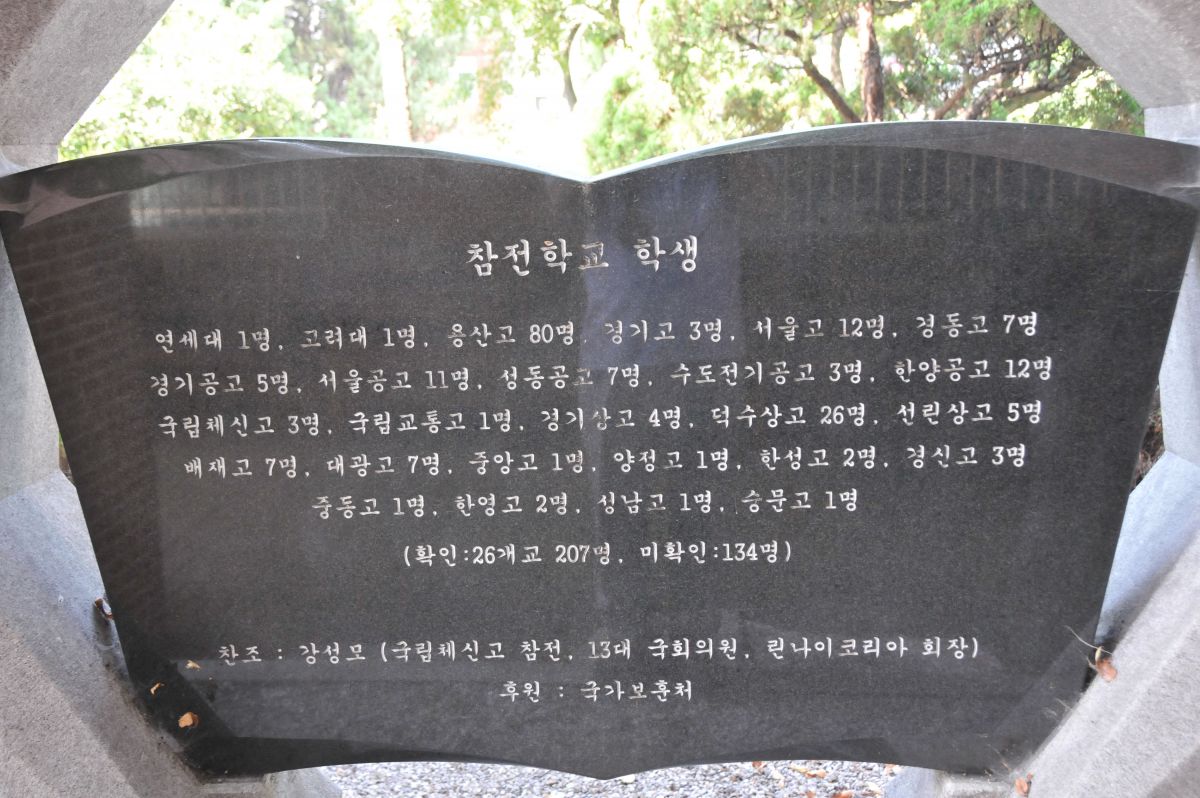 참전학교 학생
연세대 1명, 고려대 1명, 용산고 80명, 경기고 3명, 서울고 12명, 경동고 7명
경기공고 5명, 서울공고 11명, 성동공고 7명, 수도전기공고 3명, 한양공고 12명
국립체신고 3명, 국립교통고 1명, 경기상고 4명, 덕수상고 26명, 선린상고 5명
배재고 7명, 대광고 7명, 중앙고 1명, 양정고 1명, 한성고 2명, 경신고 3명
중동고 1명, 한영고 2명, 성남고 1명, 숭문고 1명
(확인:26개교 207명, 미확인:134명)
찬조 : 강성모 (국립체신고 참전, 13대 국회의원, 린나이코리아 회장)
후원 : 국가보훈처